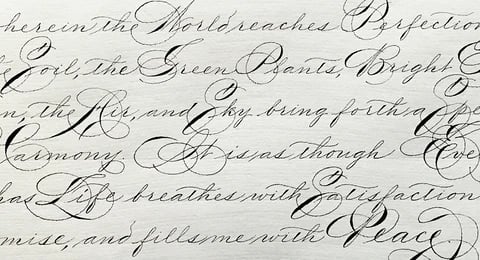 herein the World reaches Perfection
e Soil, the Green Plants, Bright S
n, the Air, and Sky bring forth a Spe
Harmony. It is as though Eve
has Life breathes with Satisfaction
mise, and fills me with Peace